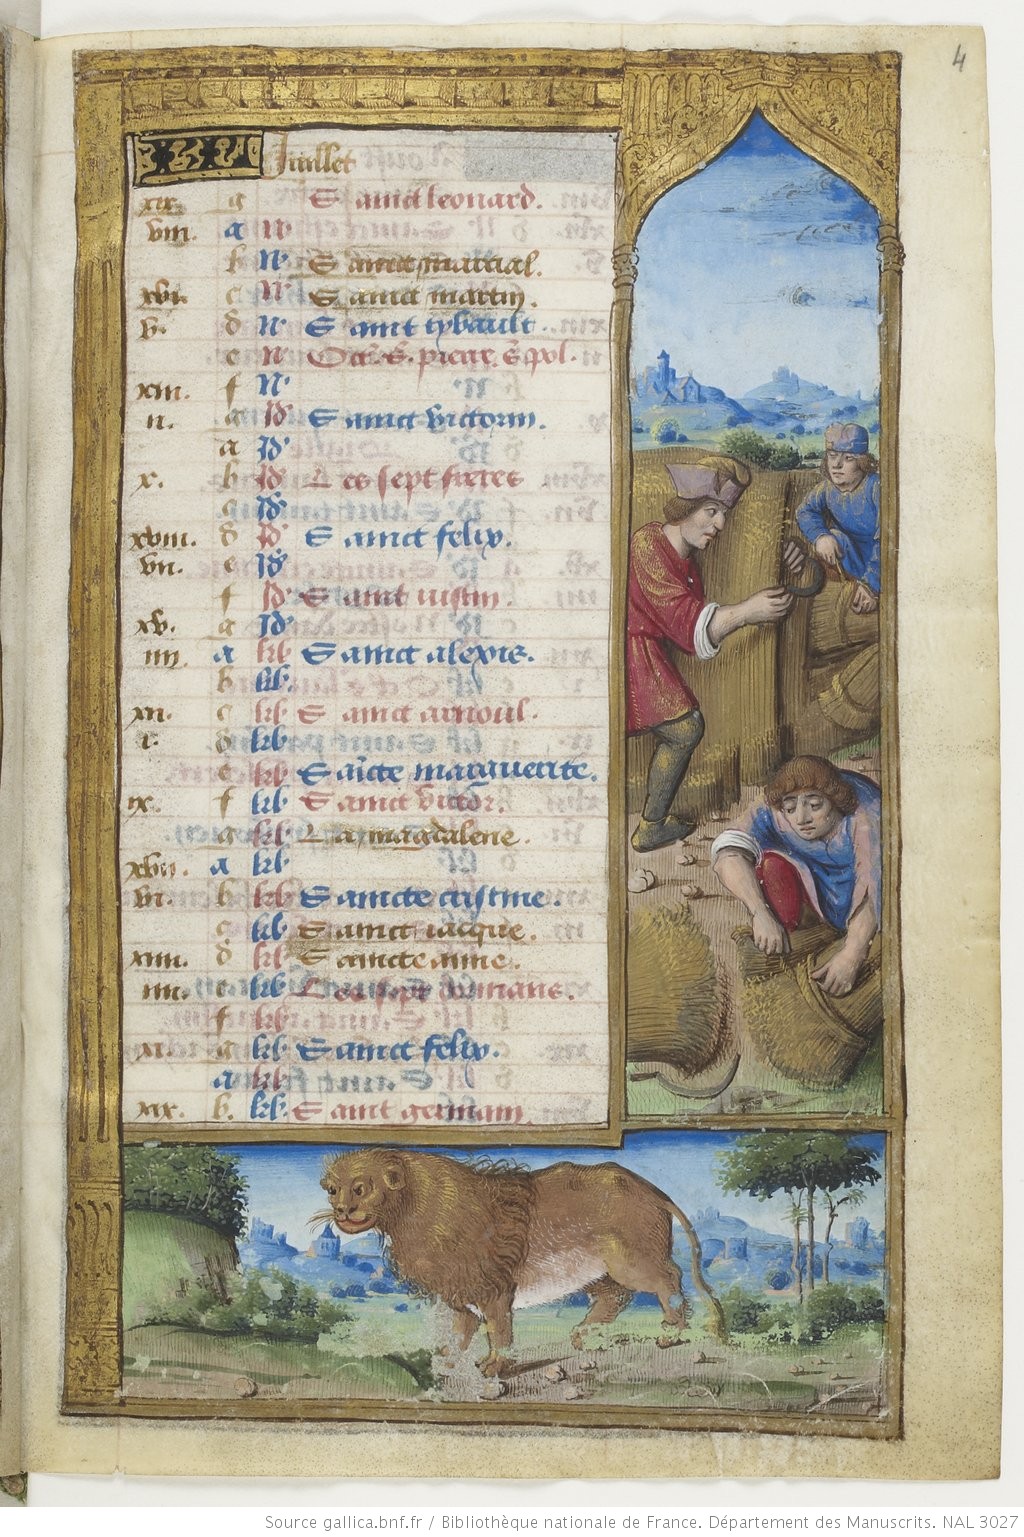 4
Juillet
xix. g Sainct leonard.
viii. a N
b N Sainct marcial.
xvi. c N Sainct martin.
v. d N Sainct tybault.
e N Oct. S. pierre. S. pol.
xiii. f N
ii. g Id Sainct victorin.
a Id
x. b Id Les sept freres
c Id
xviii. d Id Sainct felix.
vii. e Id
f Id Sainct iustin.
xv. g Id
iiii. a kl Sainct alexis.
b kl
xii. c kl Sainct arnoul.
i. d kl
e kl Saincte marguerite.
ix. f kl Sainct victor.
g kl La magdalene.
xvii. a kl
vi. b kl Saincte cristine.
c kl Sainct iacque.
xiiii. d kl Saincte anne.
iii. e kl Les sept dormans.
f kl
xi. g kl Sainct felix.
a kl
xix. b. kl Sainct germain.
Source gallica.bnf.fr / Bibliothèque nationale de France. Département des Manuscrits. NAL 3027